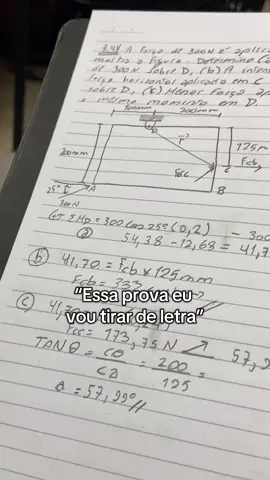 3.48 A força de 300N é aplica
mostra a figura. Determine (a
de 300N sobre D, (b) A inten
força horizontal aplicada em C
sobre D, (c) Menor força ap
o mesmo momento em D.
100mm 200mm
D
r
125m
200mm
Fcc
C
Fcb
B
25°
A
300N
(+ ΣMD = 300 cos 25° (0,2) - 300
(a) 54,38 - 12,68 = 41,7
(b) 41,70 = Fcb x 125mm
Fcb = 333
"Essa prova eu
vou tirar de letra"
(c) 41,
Fcc = 173,75N 57,9
TAN θ = CD = 200 =
CB 125
θ = 57,99°//